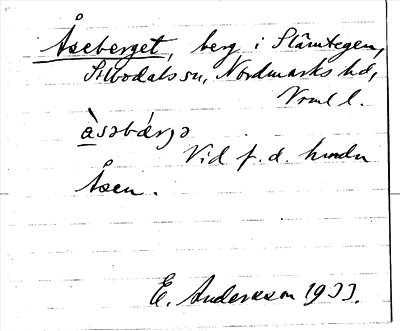 Åseberget, berg i Slämtegen,
Silbodals sn, Nordmarks hd,
Vrml l.
å̀səbǽrjə
Vid f. d. hmdn
Åsen.
E. Andersson 1933.